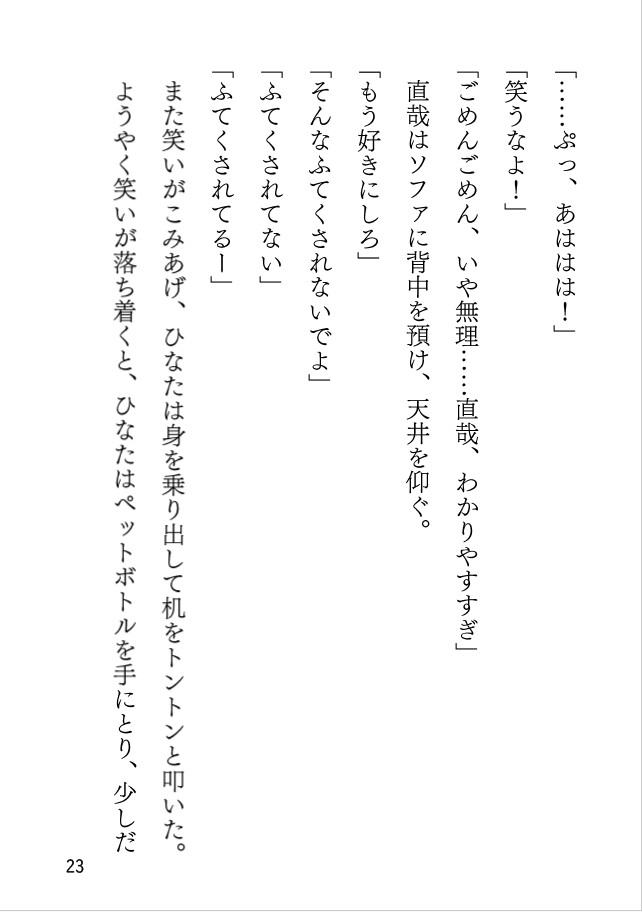 「……ぷっ、あははは！」
「笑うなよ！」
「ごめんごめん、いや無理……直哉、わかりやすすぎ」
　直哉はソファに背中を預け、天井を仰ぐ。
「もう好きにしろ」
「そんなふてくされないでよ」
「ふてくされてない」
「ふてくされてるー」
また笑いがこみあげ、ひなたは身を乗り出して机をトントンと叩いた。
ようやく笑いが落ち着くと、ひなたはペットボトルを手にとり、少しだ
23